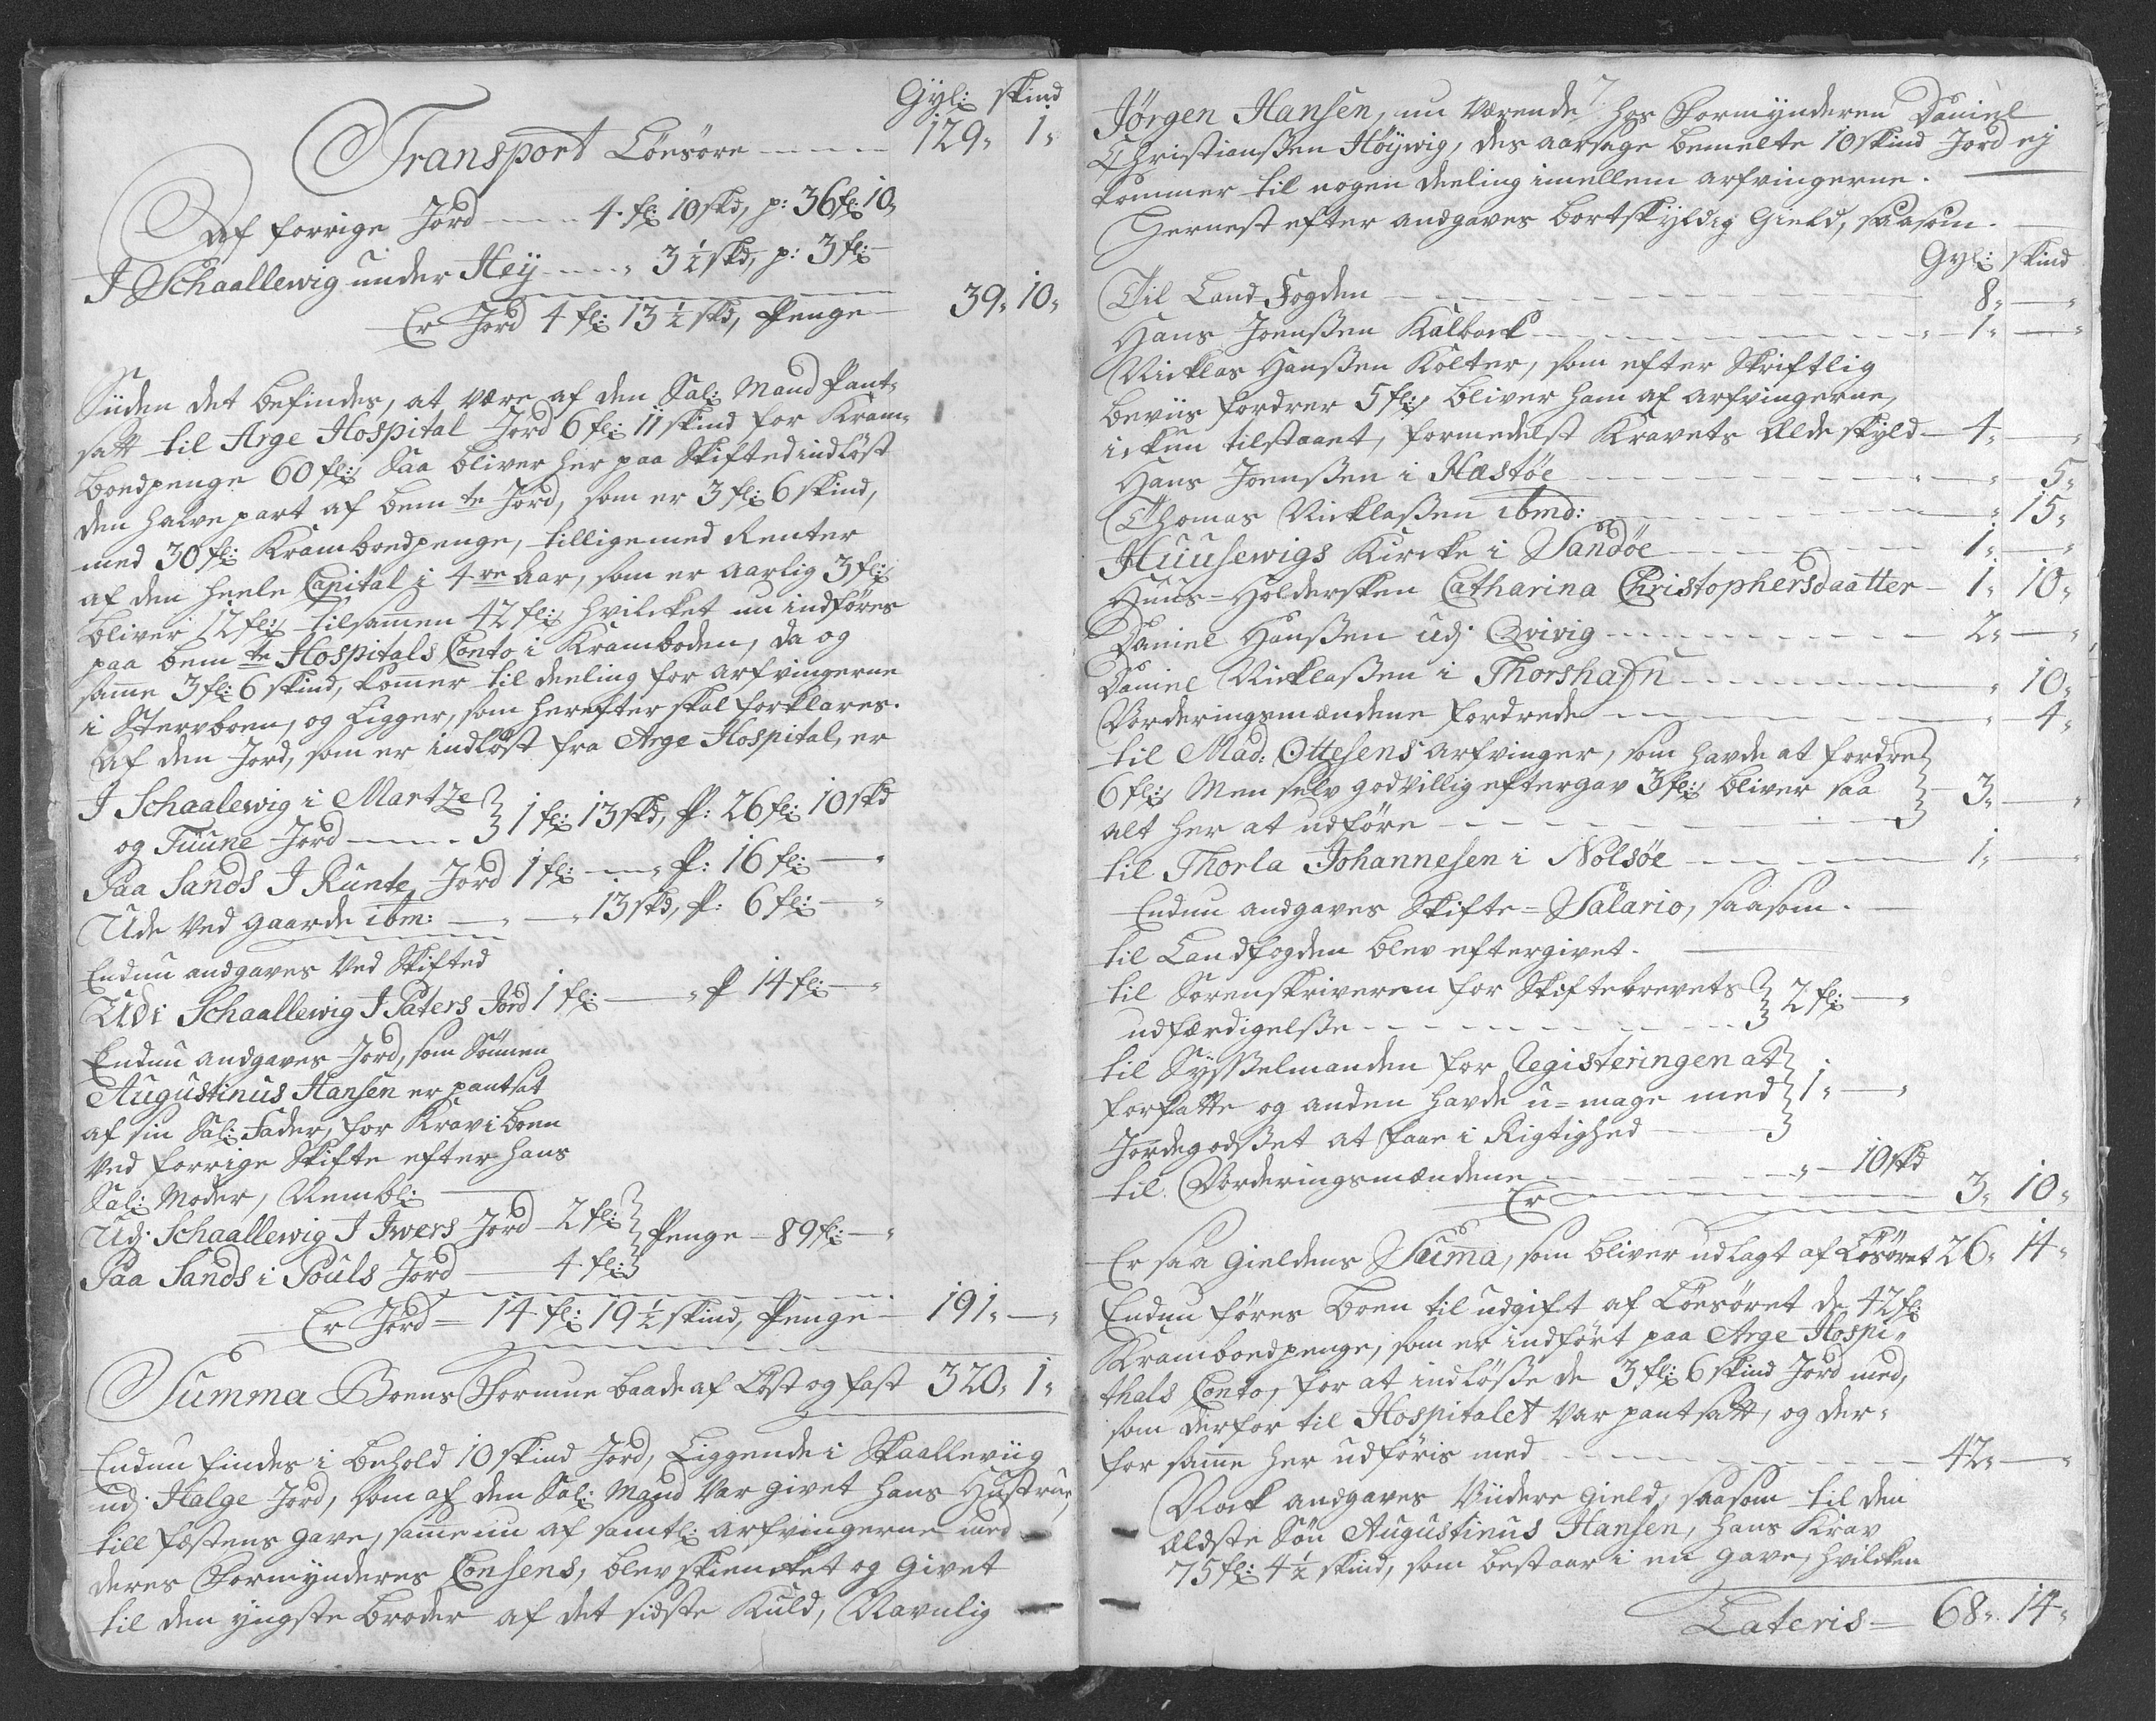 Gyl: skind
Transport Löesöre ---- 129" 1"
Af forrige Jord ---- 4 fl: 10 skd, p: 36 fl: 10"
I Schaallewig under Heÿ ---- " 3½ skd, p: 3 fl: —
Er Jord 4 fl: 13½ skd, Penge — 39" 10"
Siiden det befindes, at være af den Sal: Mand Pant-
satt til Arge Hospital Jord 6 fl: 11 skind for Kram-
boedpenge 60 fl:, Saa bliver her paa Skifted indlöst
den halve part af bem te Jord, som er 3 fl: 6 skind,
med 30 fl: Kramboedpenge, tilligemed Renter
af den heele Capital i 4 re Aar, som er aarlig 3 fl:,
bliver 12 fl:, tilsamen 42 fl:, hvilcket nu indföres
paa bem te Hospitals Conto i Kramboden, da og
same 3 fl: 6 skind, komer til deeling for arfvingerne
i Stervboen, og Ligger, som herefter skal forklares.
Af den Jord, som er indlöst fra Arge Hospital, er
I Schaalewig i Martze
og Tuune Jord ---- } 1 fl: 13 skd, P: 26 fl: 10 skd
Paa Sands I Runte Jord 1 fl: —" P: 16 fl: —"
Ude ved gaarde ibm: —" —" 13 skd, P: 6 fl: —"
Endnu andgaves Ved Skifted
Udi Schaallewig I Paters Jord 1 fl: —" P 14 fl: —"
Endnu andgaves Jord, som Sönnen
Augustinus Hansen er pantsat
af sin Sal: Fader, for Krav i boen
Ved forrige Skifte efter hans
Sal: Moder, Nembl: —
Udj Schaallewig I Iwers Jord — 2 fl: } Penge — 89 fl: —"
Paa Sands i Pouls Jord — 4 fl: }
Er Jord = 14 fl: 19½ skind, Penge — 191" —"
Summa Boens Formue baade af Löst og fast 320" 1"
Endnu findes i behold 10 skind Jord, Liggende i Skaalleviig
udj Halge Jord, som af den Sal: Mand var givet hans Hustrue,
till fæstens gave, same nu af samtl: arfvingerne med
deres Formynderes Consens, blev skiencket og givet
til den yngste broder af det sidste Kuld, Navnlig
7.
Jörgen Hansen, nu værende hos Formynderen Daniel
Christianßen Höÿwig, des aarsage bemelte 10 skind Jord ej
kommer til nogen deeling imellem arfvingerne. —
Hernest efter andgaves bortskyldig Gield, saasom. —
Gyl: skind
Til Land Fogden ---- 8" —"
Hans Joenßen Kalbock ---- " 1" —"
Nicklas Hanßen Kolter, som efter Skriftlig
beviis fordrer 5 fl:, bliver ham af arfvingerne,
ickun tilstaaet, formedelst Kravets Elde skyld — 4" —"
Hans Joenßen i Næstöe ---- " — 5"
Thomas Nicklaßen ibmd: ---- " 15"
Huusewigs Kircke i Sandöe ---- 1" —"
Huus-Holdersken Catharina Christophersdaatter — 1" 10"
Daniel Hanßen udj Qvivig ---- 2" —"
Daniel Nicklaßen i Thorshafn ---- " 10"
Vorderingsmændene fordrede ---- " 4"
til Mad: Ottesens arfvinger, som havde at fordre
6 fl:, Men selv godvillig eftergav 3 fl:, bliver saa } — 3" —"
alt her at udföre ----
til Thorla Johannesen i Nolsöe ---- 1" —"
Endnu andgaves Skifte-Salario, saasom. —
til Landfogden blev eftergivet. —
til Sorenskriveren for Skiftebrevets } 2 fl: —"
udfærdigelße ----
til Sÿßelmanden for Registeringen at
forfatte og anden havde u-mage med } 1" —"
Jordegodßet at faae i Rigtighed —
til Vorderingsmændene ---- " — 10 skd
Er ---- 3" 10"
Er saa gieldens Suma, som bliver udlagt af Lösöret 26" 14"
Endnu föres boen til udgift af Löesöret de 42 fl:
Kramboedpenge, som er indfört paa Arge Hospi-
thals Conto, for at indlöße de 3 fl: 6 skind Jord med,
som derfor til Hospitalet var pantsatt, og der-
for same her udföris med ---- 42" —"
Nock andgaves Viidere gield, saasom til den
ældste Sön Augustinus Hansen, hans Krav
75 fl: 4½ skind, som bestaar i en gave, hvilcken
Lateris = 68" 14"